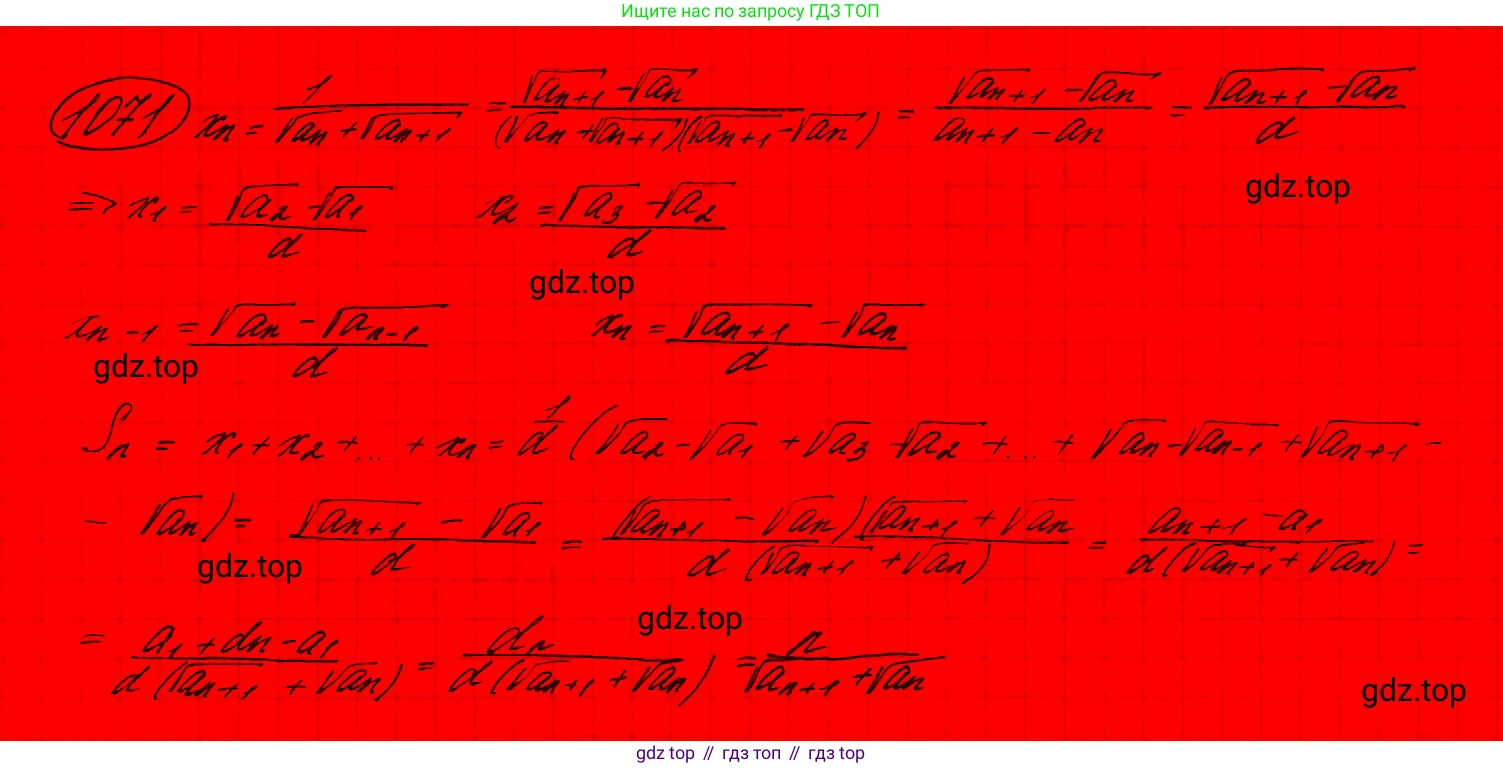 Ищите нас по запросу ГДЗ ТОП
1071 xn = 1/(√an + √an+1) = (√an+1 - √an)/((√an + √an+1)(√an+1 - √an)) = (√an+1 - √an)/(an+1 - an) = (√an+1 - √an)/d
gdz.top
=> x1 = (√a2 - √a1)/d x2 = (√a3 - √a2)/d
gdz.top
xn-1 = (√an - √an-1)/d xn = (√an+1 - √an)/d
gdz.top
Sn = x1 + x2 + ... + xn = 1/d (√a2 - √a1 + √a3 - √a2 + ... + √an - √an-1 + √an+1 -
- √an) = (√an+1 - √a1)/d = (√an+1 - √an)(√an+1 + √an/d(√an+1 + √an) = (an+1 - a1)/d(√an+1 + √an) =
gdz.top
gdz.top
= (a1 + dn - a1)/d(√an+1 + √an) = dn/d(√an+1 + √an) = n/(√an+1 + √an)
gdz.top
gdz top // гдз топ // гдз top